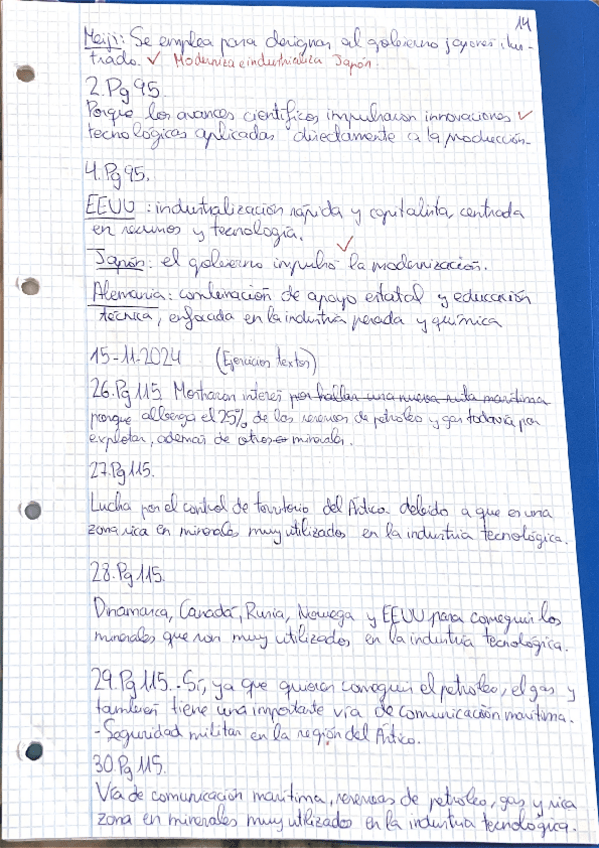 14
Meiji: Se emplea para designar al gobierno japonés ilus-
trado. ✓ Moderniza e industrializa Japón.
2.Pg 95.
Porque los avances científicos impulsaron innovaciones ✓
tecnológicas aplicadas directamente a la producción.
4.Pg 95.
EEUU: industrialización rápida y capitalista, centrada
en recursos y tecnología.
✓
Japón: el gobierno impulsó la modernización.
Alemania: combinación de apoyo estatal y educación
técnica, enfocada en la industria pesada y química
15-11-2024 (Ejercicios textos)
26.Pg 115. Mostraron interés por hallar una nueva ruta marítima
porque alberga el 25% de las reservas de petróleo y gas todavía por
explotar, además de otros minerales.
27.Pg 115.
Lucha por el control de territorio del Ártico debido a que es una
zona rica en minerales muy utilizados en la industria tecnológica.
28.Pg 115.
Dinamarca, Canadá, Rusia, Noruega y EEUU para conseguir los
minerales que son muy utilizados en la industria tecnológica.
29.Pg 115.-Sí, ya que quieren conseguir el petróleo, el gas y
también tiene una importante vía de comunicación marítima.
-Seguridad militar en la región del Ártico.
30.Pg 115.
Vía de comunicación marítima, reservas de petróleo, gas y rica
zona en minerales muy utilizados en la industria tecnológica.